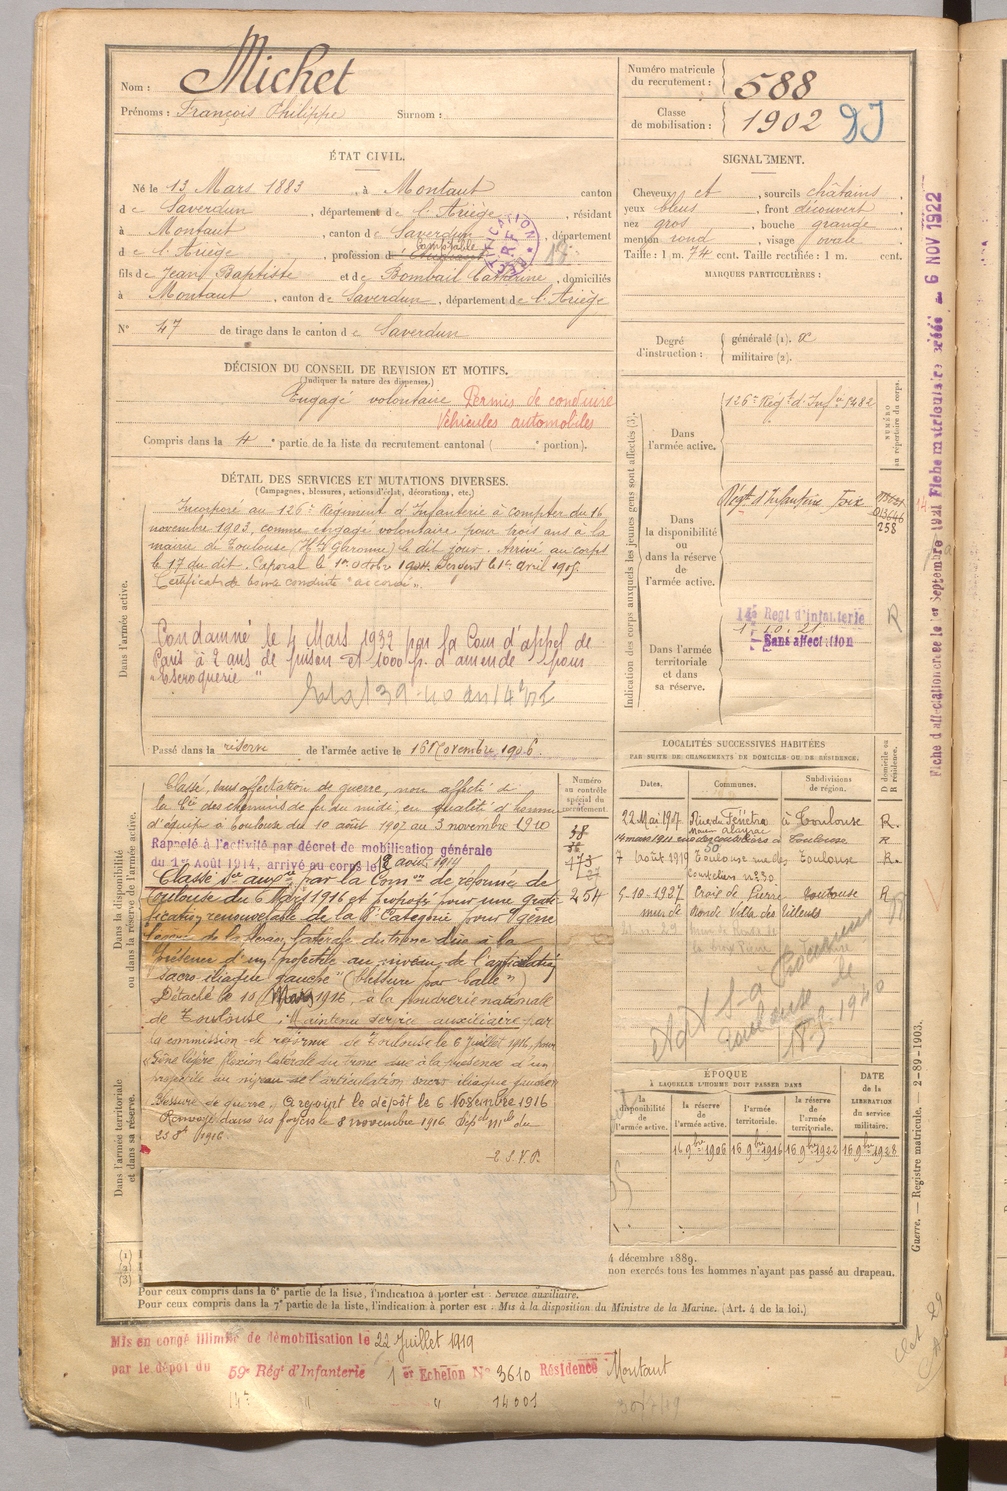 Nom : Michet
Prénoms : François Philippe Surnom :
Numéro matricule du recrutement : 588
Classe de mobilisation : 1902
ÉTAT CIVIL.
Né le 13 Mars 1883, à Montaut canton
de Saverdun, département de l'Ariège, résidant
à Montaut, canton de Saverdun, département
de l'Ariège, profession d Comptable
fils de Jean Baptiste et de Bombail Catherine, domiciliés
à Montaut, canton de Saverdun, département de l'Ariège
N° 47 de tirage dans le canton de Saverdun
SIGNALEMENT.
Cheveux et, sourcils châtains
yeux bleus, front découvert
nez gros, bouche grande
menton rond, visage ovale
Taille : 1 m. 74 cent. Taille rectifiée : 1 m. cent.
MARQUES PARTICULIÈRES :
Degré d'instruction : générale (1).
militaire (2).
DÉCISION DU CONSEIL DE REVISION ET MOTIFS.
(Indiquer la nature des dispenses.)
Engagé volontaire Permis de conduire
Véhicules automobiles
Compris dans la 4e partie de la liste du recrutement cantonal ( e portion).
DÉTAIL DES SERVICES ET MUTATIONS DIVERSES.
(Campagnes, blessures, actions d'éclat, décorations, etc.)
Dans l'armée active.
Incorporé au 126e Régiment d'Infanterie à compter du 16
novembre 1903, comme engagé volontaire pour trois ans à la
mairie de Toulouse (Hte Garonne) le dit jour. Arrivé au corps
le 17 du dit. Caporal le 1er octobre 1904. Sergent le 1er avril 1905.
Certificat de bonne conduite "accordé".
Condamné le 4 Mars 1932 par la Cour d'appel de
Paris à 2 ans de prison et 1000 f. d'amende pour
"Escroquerie"
Passé dans la réserve de l'armée active le 16 Novembre 1906.
Indication des corps auxquels les jeunes gens sont affectés (3).
NUMÉRO au répertoire du corps.
Dans l'armée active.
126e Régt d'Infie 5482
Dans la disponibilité ou dans la réserve de l'armée active.
Régt d'Infanterie Foix
258
Dans l'armée territoriale et dans sa réserve.
Regt d'infanterie
Sans affectation
R
Fiche d'affectation créée le 1er Septembre 1921 Fiche matriculaire créée le 6 NOV 1922
Dans la disponibilité ou dans la réserve de l'armée active.
Dans l'armée territoriale et dans sa réserve.
Classé, sans affectation de guerre, non affecté de
la Cie des chemins de fer du midi, en qualité d'homme
d'équipe à Toulouse du 10 août 1907 au 3 novembre 1910
Rappelé à l'activité par décret de mobilisation générale
du 1er Août 1914, arrivé au corps le 12 août 1914
Classé Sce auxre par la Comon de réforme de
Toulouse du 6 Mars 1916 et proposé pour une grati
fication renouvelable de la 8e Catégorie pour "gêne
légère de la flexion latérale du tronc due à la
présence d'un projectile au niveau de l'articulation
sacro-iliaque gauche" (Blessure par balle")
Détaché le 10 Mars 1916, à la poudrerie nationale
de Toulouse ; Maintenu service auxiliaire par
la commission de réforme de Toulouse le 6 juillet 1916, pour
"Gêne légère flexion latérale du tronc due à la présence d'un
projectile au niveau de l'articulation sacro iliaque gauche
Blessure de guerre. A rejoint le dépôt le 6 Novembre 1916
Renvoyé dans ses foyers le 8 novembre 1916
1916
T. S. V. P.
Numéro au contrôle spécial du recrutement.
38
473
254
LOCALITÉS SUCCESSIVES HABITÉES
PAR SUITE DE CHANGEMENTS DE DOMICILE OU DE RÉSIDENCE.
Dates. Communes. Subdivisions de région. D domicile ou R résidence.
22 Mai 1907. Rue du Férétra à Toulouse R.
14 mars 1911 Toulouse R
7 août 1919 Toulouse rue des Toulouse R.
Couteliers n° 30
5-10-1927 Croix de Pierre Toulouse R
Ronde Villa des Tilleuls
ÉPOQUE
À LAQUELLE L'HOMME DOIT PASSER DANS
la disponibilité de l'armée active.
la réserve de l'armée active.
l'armée territoriale.
la réserve de l'armée territoriale.
DATE de la LIBÉRATION du service militaire.
16 9bre 1906 16 9bre 1916 16 9bre 1922 16 9bre 1928
(1)
(2)
(3)
4 décembre 1889.
non exercés tous les hommes n'ayant pas passé au drapeau.
Pour ceux compris dans la 6e partie de la liste, l'indication à porter est : Service auxiliaire.
Pour ceux compris dans la 7e partie de la liste, l'indication à porter est : Mis à la disposition du Ministre de la Marine. (Art. 4 de la loi.)
Guerre. — Registre matricule. — 2-89-1903.
Mis en congé illimité de démobilisation le 22 Juillet 1919
par le dépôt du 59e Régt d'Infanterie 1er Echelon N° 3610 Résidence Montaut
14001